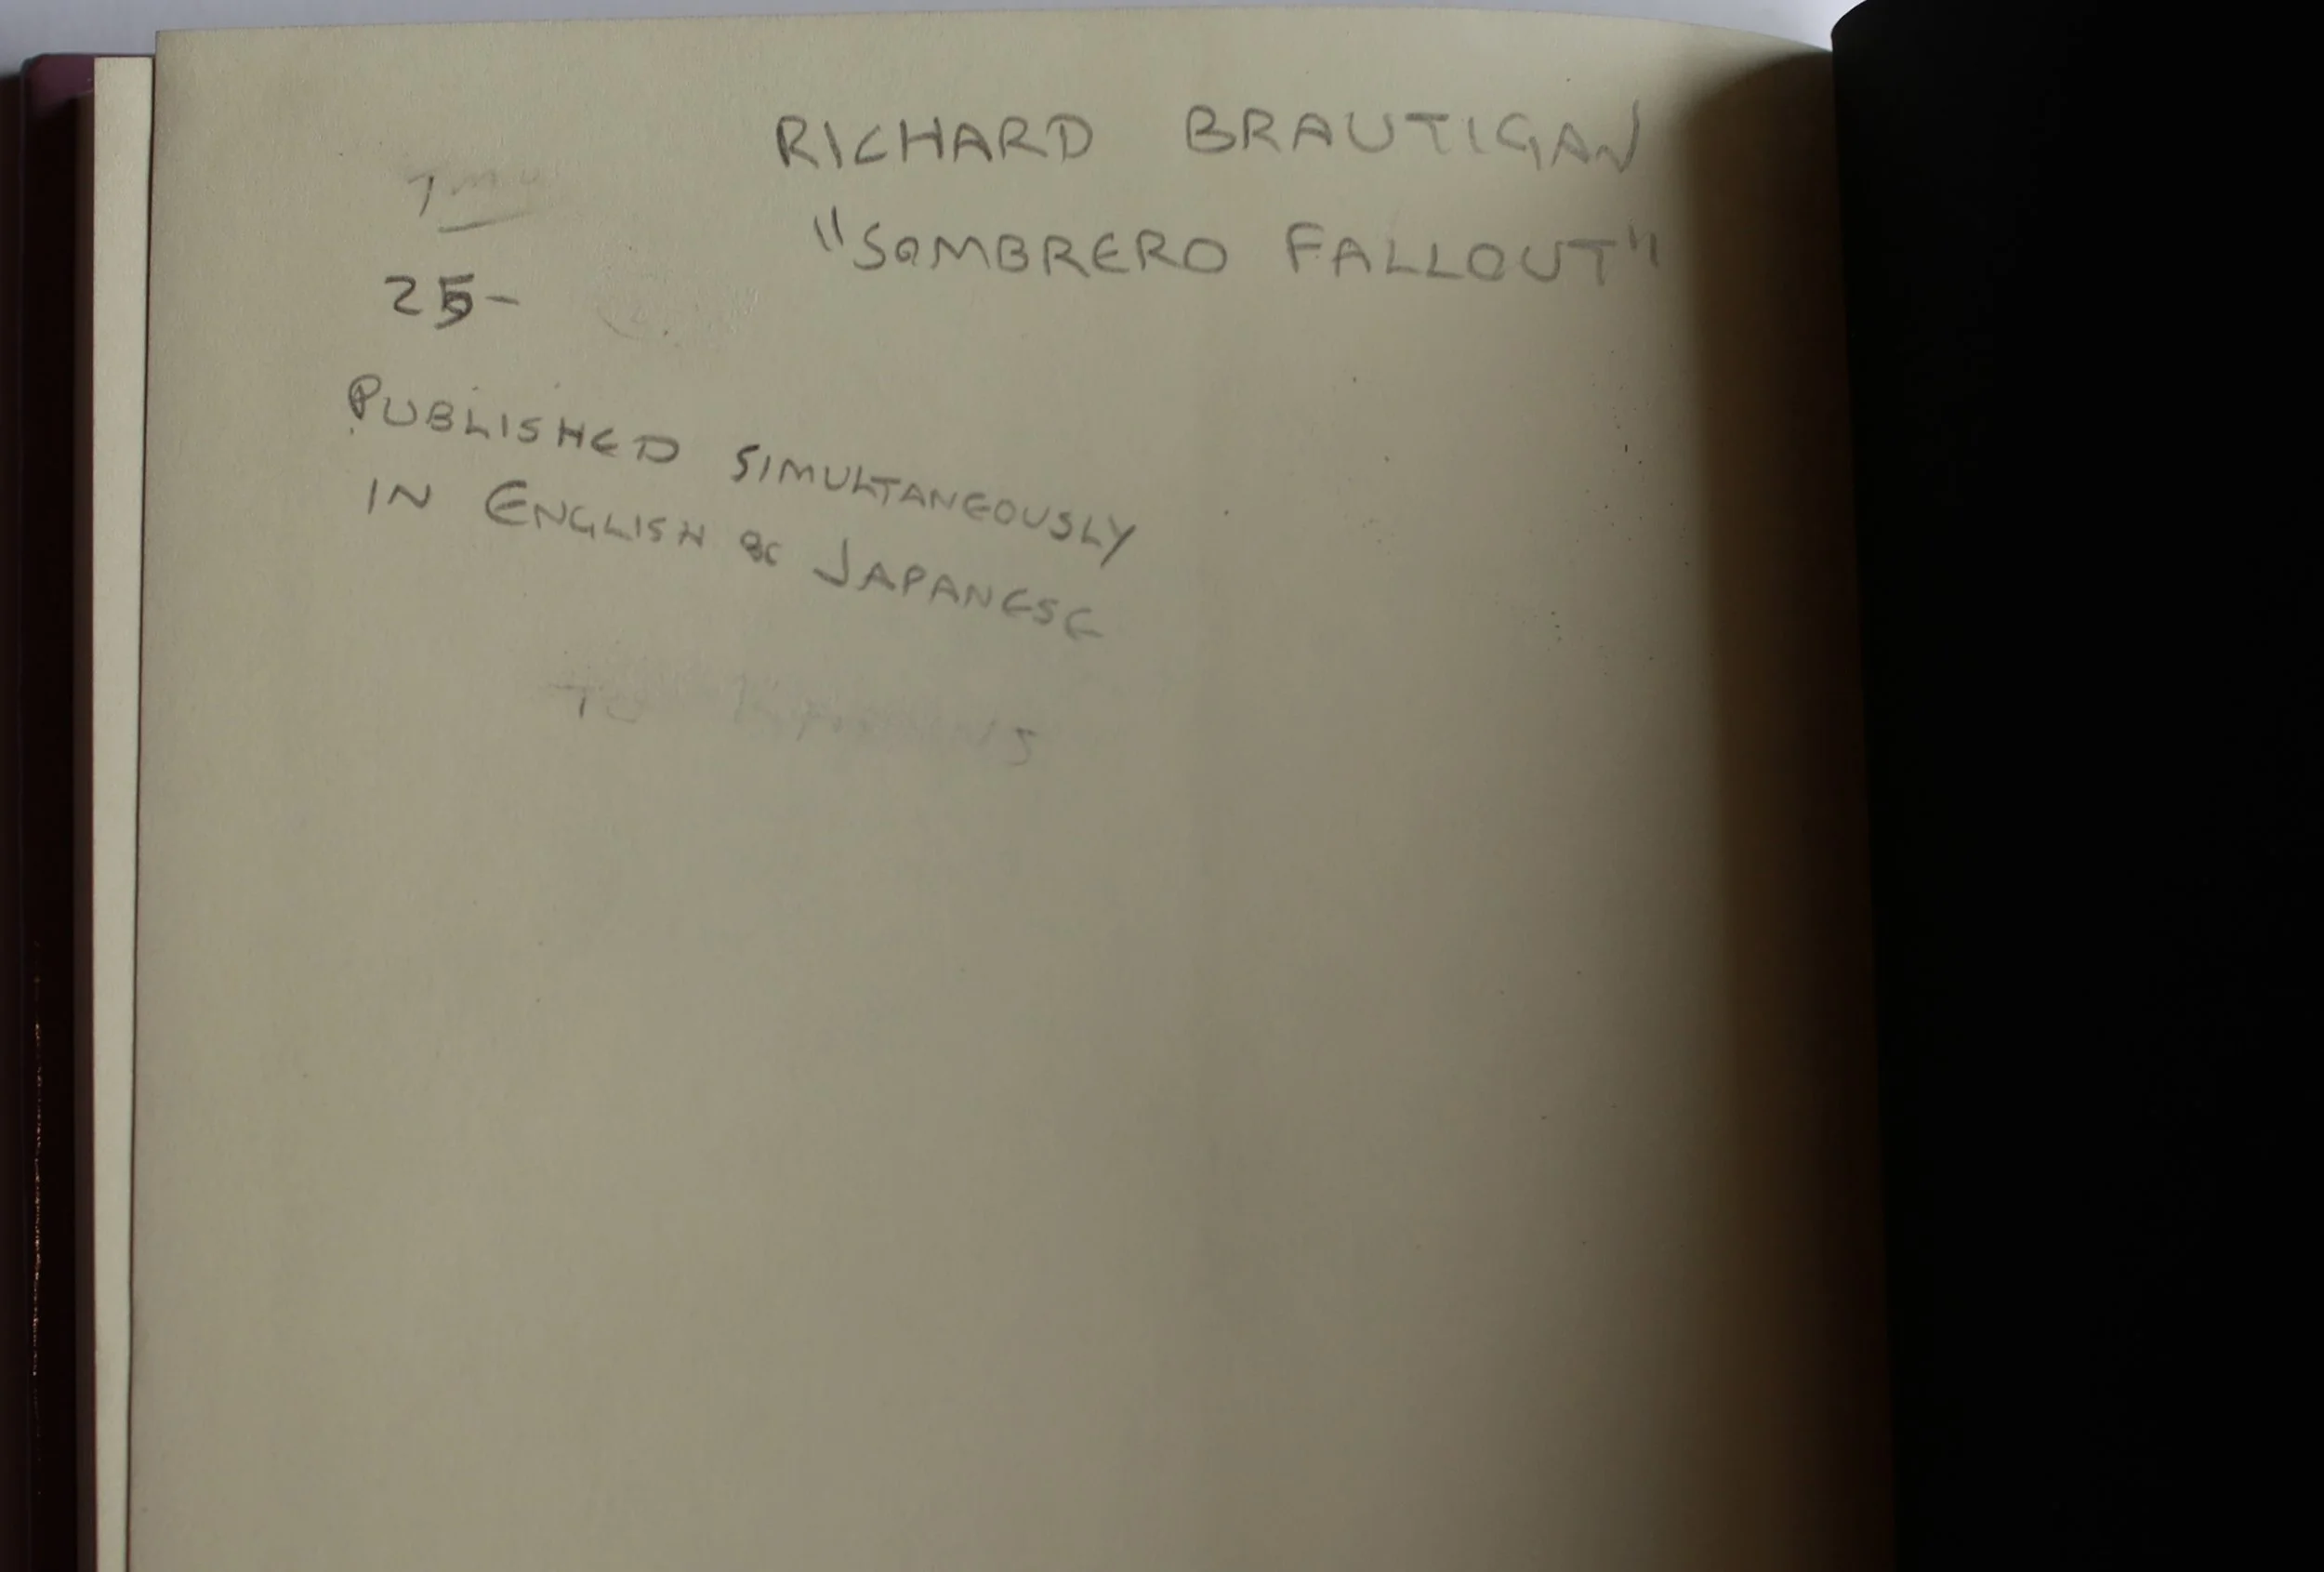 RICHARD BRAUTIGAN
"SOMBRERO FALLOUT"
25-
PUBLISHED SIMULTANEOUSLY
IN ENGLISH & JAPANESE
TO